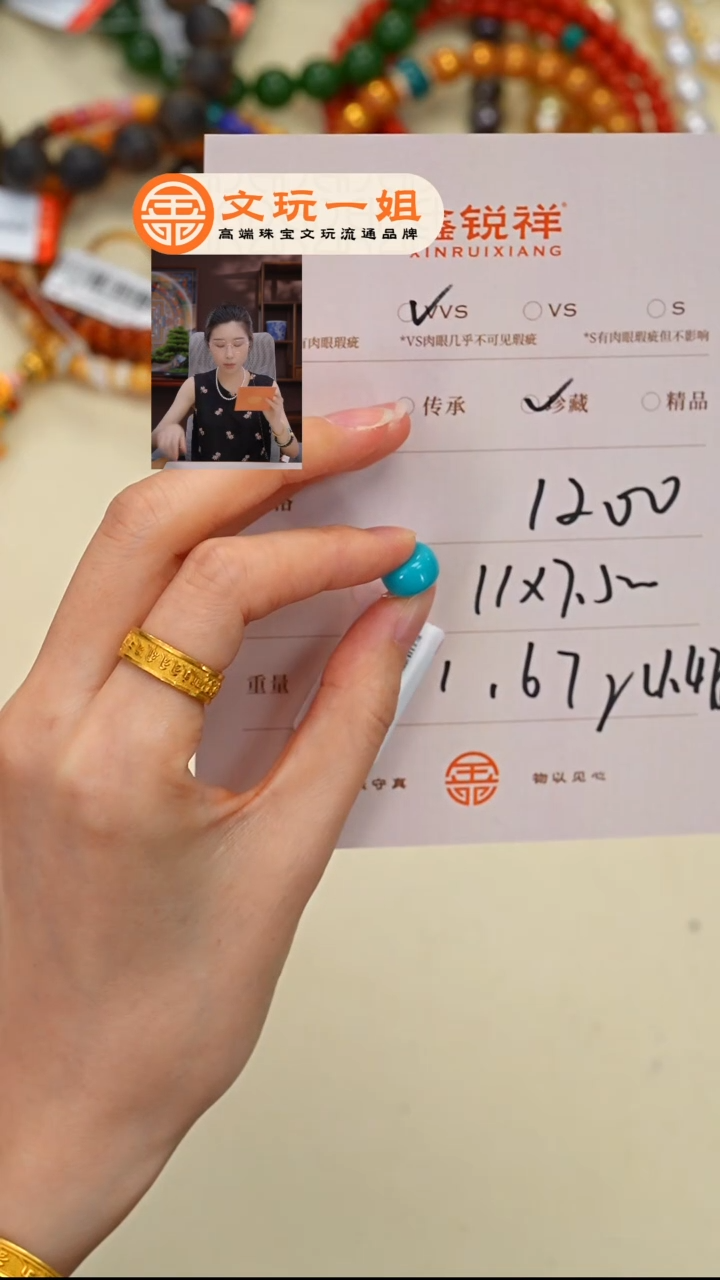 文玩一姐
高端珠宝文玩流通品牌
鑫锐祥
XINRUIXIANG
VVS VS S
有肉眼瑕疵 *VS肉眼几乎不可见瑕疵 *S有肉眼瑕疵但不影响
传承 珍藏 精品
1200
11x7.5
重量 1.67g
守真 物以见心